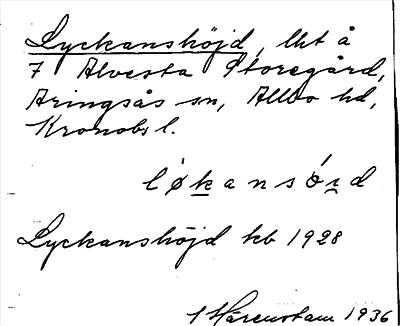 Lyckanshöjd, lht å
7 Alvesta Storegård,
Aringsås sn, Allbo hd,
Kronobs l.
løkansórd
Lyckanshöjd kb 1928
Härenstam 1936